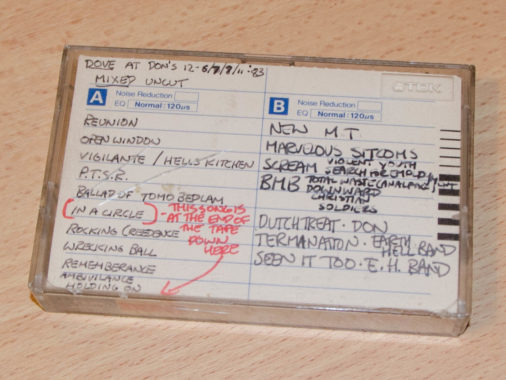 DOVE AT DON'S 12-6/7/8/11:83
MIXED UNCUT
TDK
A Noise Reduction
EQ Normal: 120µs
REUNION
OPEN WINDOW
VIGILANTE / HELLS KITCHEN
P.T.S.R.
BALLAD OF TOMO BEDLAM
(IN A CIRCLE) - THIS SONG IS
AT THE END OF
THE TAPE
DOWN
HERE
ROCKING CREEDENCE
WRECKING BALL
REMEMBERANCE
AMBIVALANCE
HOLDING ON
B Noise Reduction
EQ Normal: 120µs
NEW M.T.
MARVELOUS SITCOMS
SCREAM VIOLENT YOUTH
SEARCH FOR EMPLOYMENT
BMB TOTAL WASTE
DOWNWARD
CHRISTIAN
SOLDIERS
DUTCH TREAT · DON
TERMANATION · EARTH
HELL BAND
SEEN IT TOO · E.H. BAND